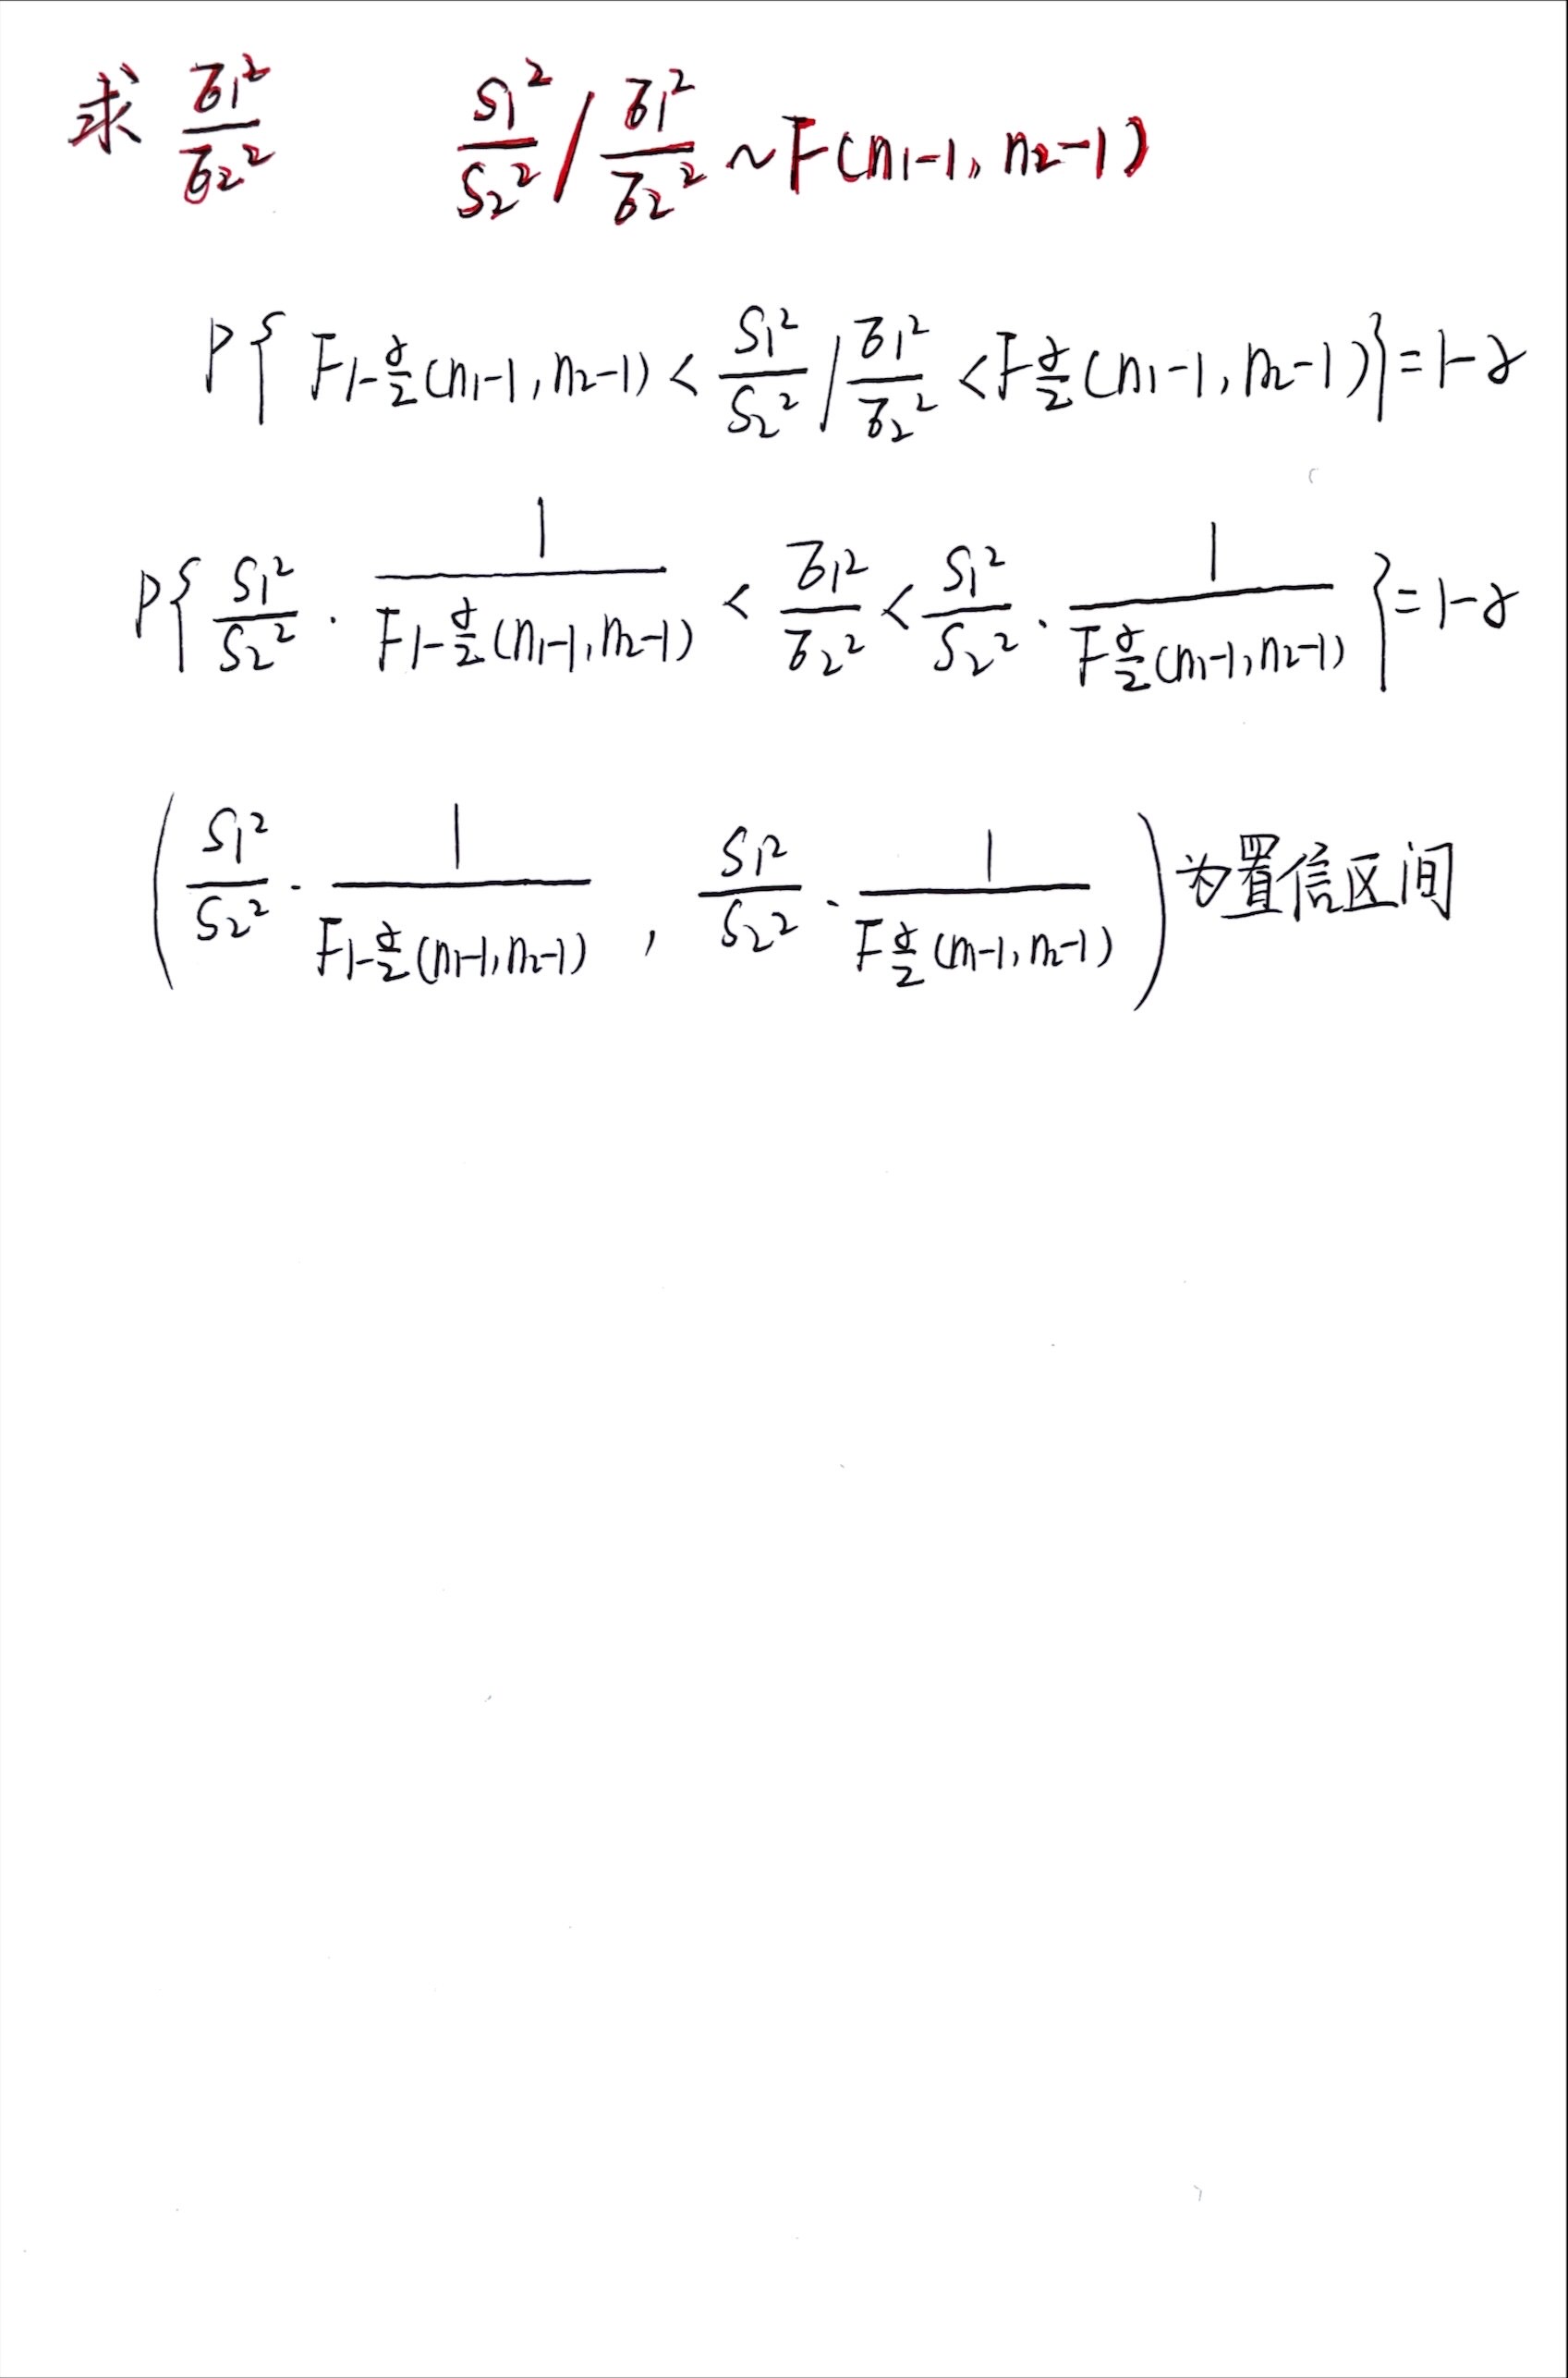 求 σ₁²/σ₂²  S₁²/S₂² / σ₁²/σ₂² ~ F(n₁-1, n₂-1)
P{ F1-α/2(n₁-1, n₂-1) < S₁²/S₂² / σ₁²/σ₂² < Fα/2(n₁-1, n₂-1) } = 1-α
P{ S₁²/S₂² · 1/F1-α/2(n₁-1, n₂-1) < σ₁²/σ₂² < S₁²/S₂² · 1/Fα/2(n₁-1, n₂-1) } = 1-α
( S₁²/S₂² · 1/F1-α/2(n₁-1, n₂-1) , S₁²/S₂² · 1/Fα/2(n₁-1, n₂-1) ) 为置信区间